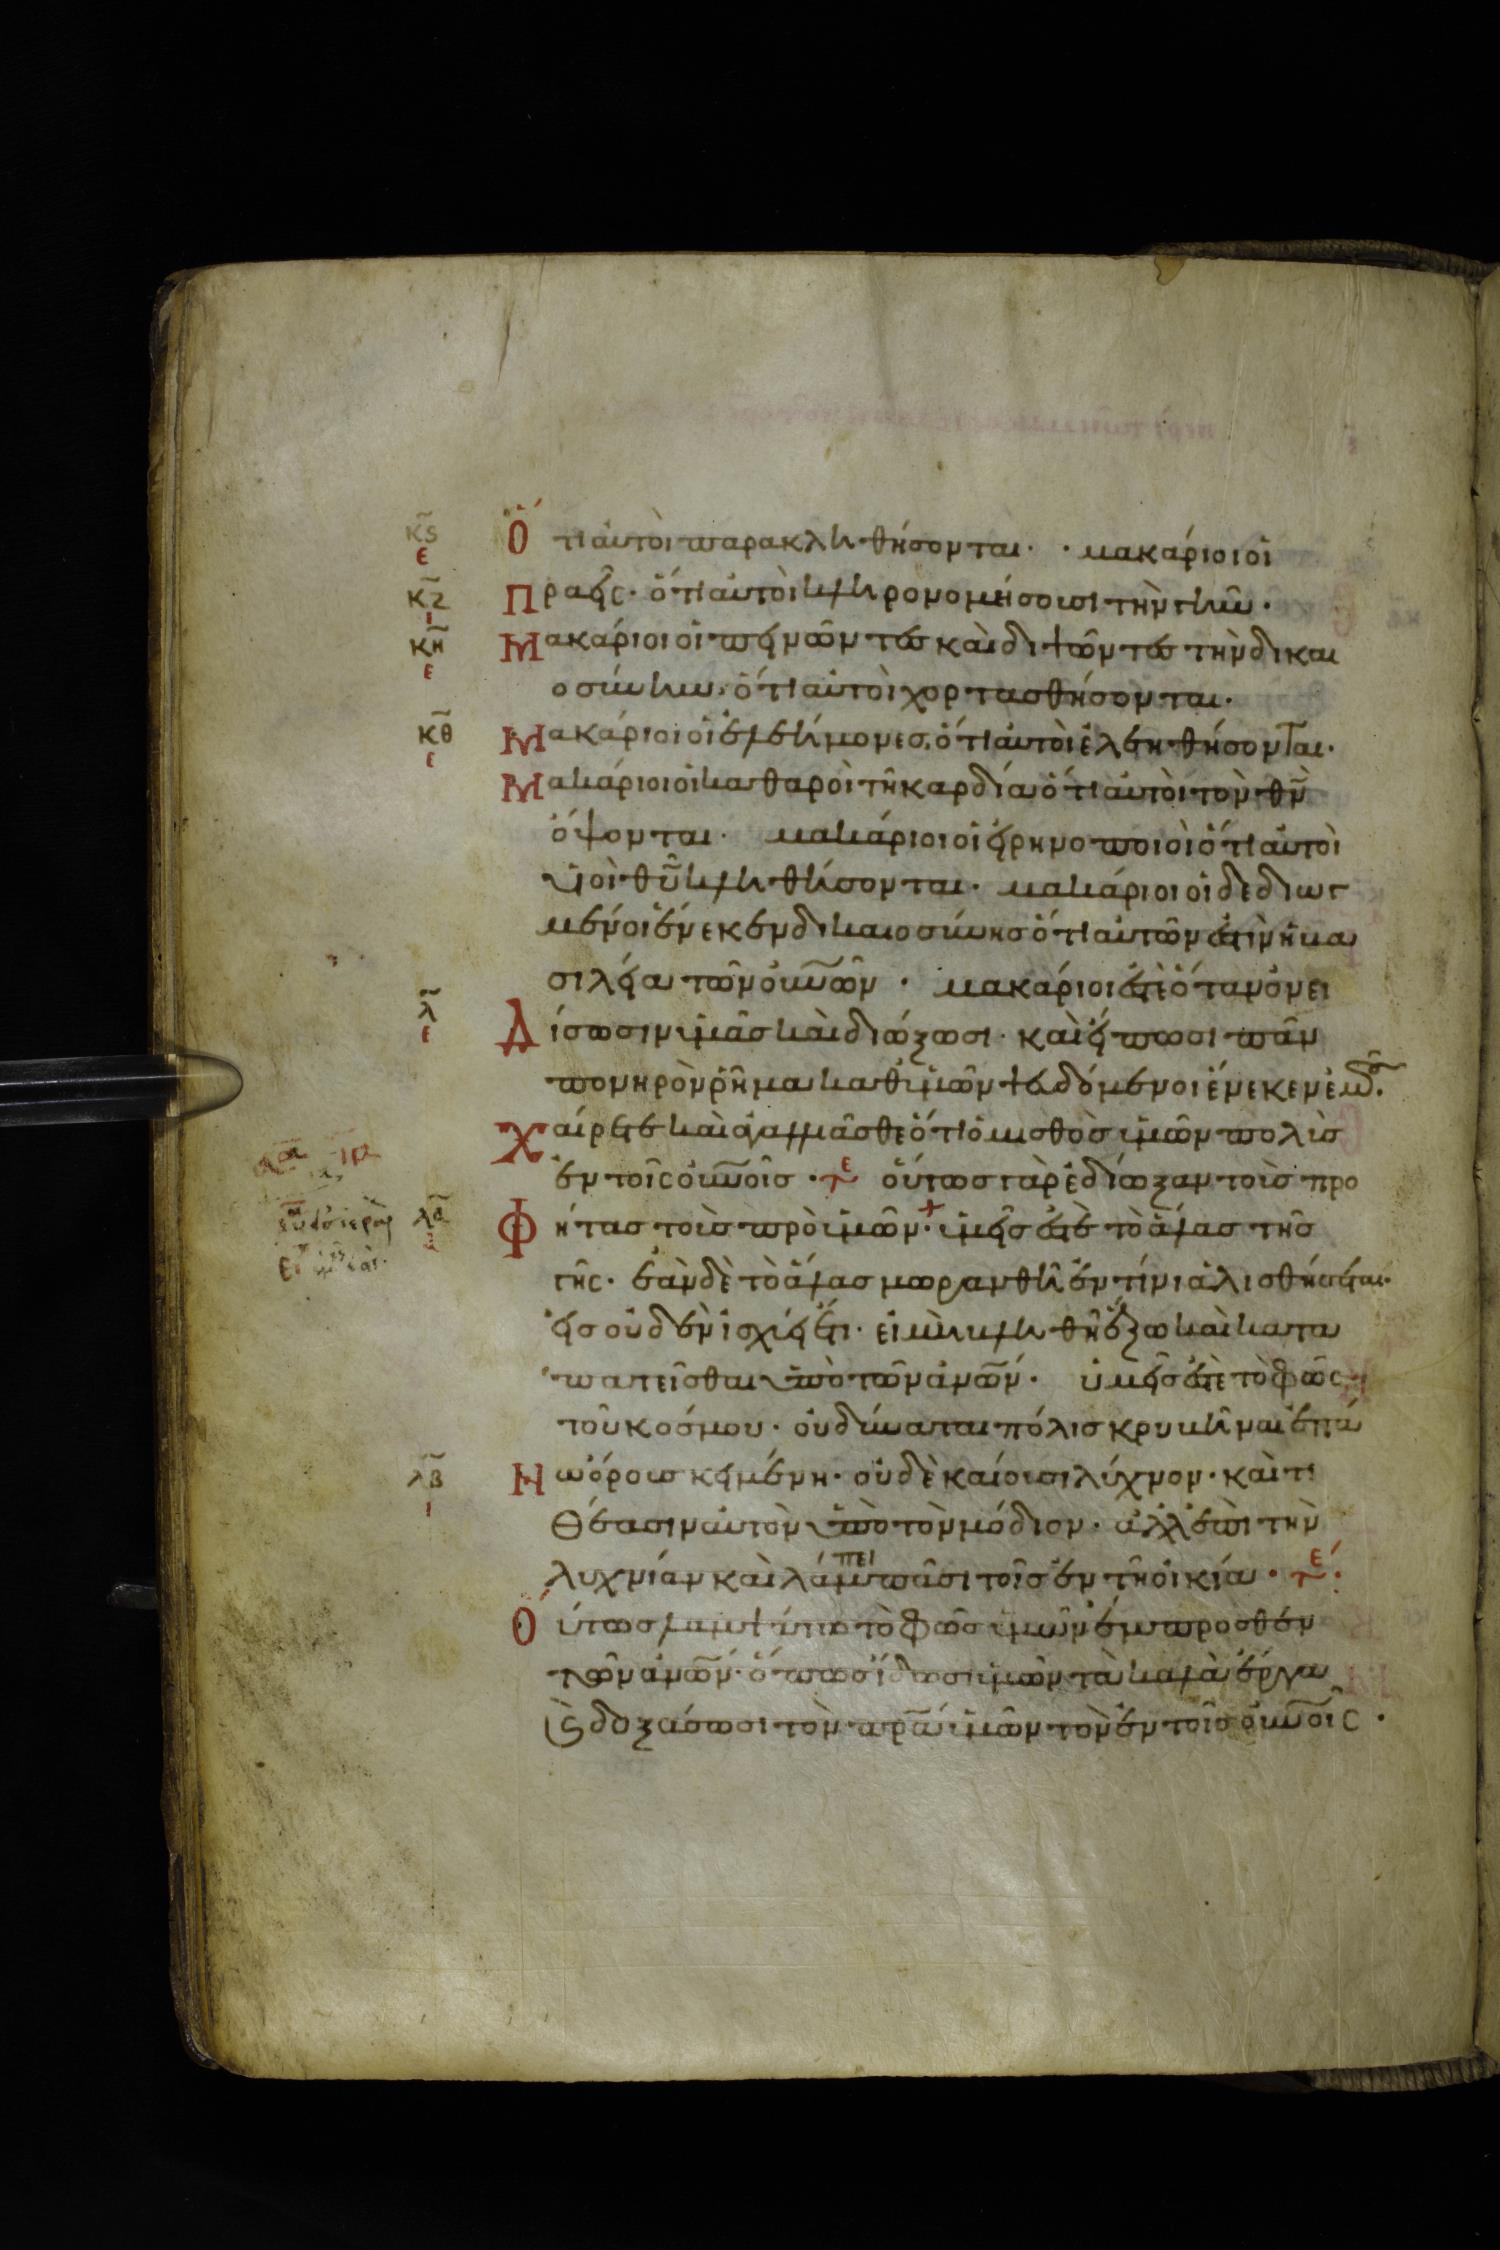 κϛ
ε
Ὅτι αὐτοὶ παρακληθήσονται · · μακάριοι οἱ
κζ
ι
πραεῖς · ὅτι αὐτοὶ κληρονομήσουσι τὴν γῆν ·
κη
ε
Μακάριοι οἱ πεινῶντες καὶ διψῶντες τὴν δικαι
οσύνην · ὅτι αὐτοὶ χορτασθήσονται ·
κθ
ε
Μακάριοι οἱ ἐλεήμονες · ὅτι αὐτοὶ ἐλεηθήσονται ·
Μακάριοι οἱ καθαροὶ τῆ καρδία ὅτι αὐτοὶ τὸν θν
ὄψονται · μακάριοι οἱ εἰρηνοποιοὶ ὅτι αὐτοὶ
υἱοὶ θυ κληθήσονται · μακάριοι οἱ δεδιωγ
μένοι ἕνεκεν δικαιοσύνης ὅτι αὐτῶν ἐστὶν ἡ βα
σιλεία τῶν οὐνῶν · μακάριοι ἐστὲ ὅταν ὀνει
λ
ε
δίσωσιν ὑμᾶς καὶ διώξωσι · καὶ εἴπωσι πᾶν
πονηρὸν ῥῆμα καθ ὑμῶν ψευδόμενοι ἕνεκεν ἐμοῦ ·
Χαίρετε καὶ ἀγαλλιᾶσθε ὅτι ὁ μισθὸς ὑμῶν πολὺς
ἐν τοῖς οὐνοῖς · τε οὕτως γὰρ ἐδίωξαν τοὺς προ
λα
φήτας τοὺς πρὸ ὑμῶν · ὑμεῖς ἐστὲ τὸ ἅλας τῆς
γῆς · ἐὰν δὲ τὸ ἅλας μωρανθῆ ἐν τίνι ἁλισθήσεται ·
εἰς οὐδὲν ἰσχύει ἔτι · εἰ μὴ βληθῆ ἔξω καὶ κατα
πατεῖσθαι ὑπὸ τῶν ἀνων · ὑμεῖς ἐστὲ τὸ φῶς
τοῦ κόσμου · οὐ δύναται πόλις κρυβῆναι ἐπά
λβ
ι
νω ὄρους κειμένη · οὐδὲ καίουσι λύχνον · καὶ τι
θέασιν αὐτὸν ὑπὸ τὸν μόδιον · ἀλλ ἐπὶ τὴν
λυχνίαν καὶ λάμπει πᾶσι τοῖς ἐν τῆ οἰκία · τε
Οὕτως λαμψάτω τὸ φῶς ὑμῶν ἔμπροσθεν
τῶν ἀνων · ὅπως ἴδωσιν ὑμῶν τὰ καλὰ ἔργα
ϗ δοξάσωσι τὸν πρα ὑμῶν τὸν ἐν τοῖς οὐνοῖς ·